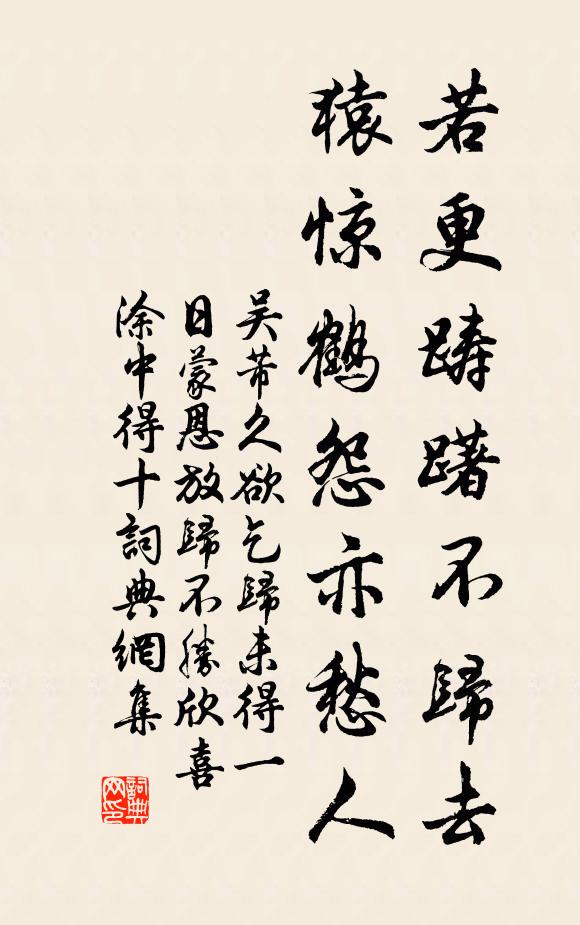 若更踌躇不歸去
猿惊鶴怨亦愁人
吴芾久欲乞歸未得一
日蒙恩放歸不勝欣喜
涂中得十詞典網集
詞典网印